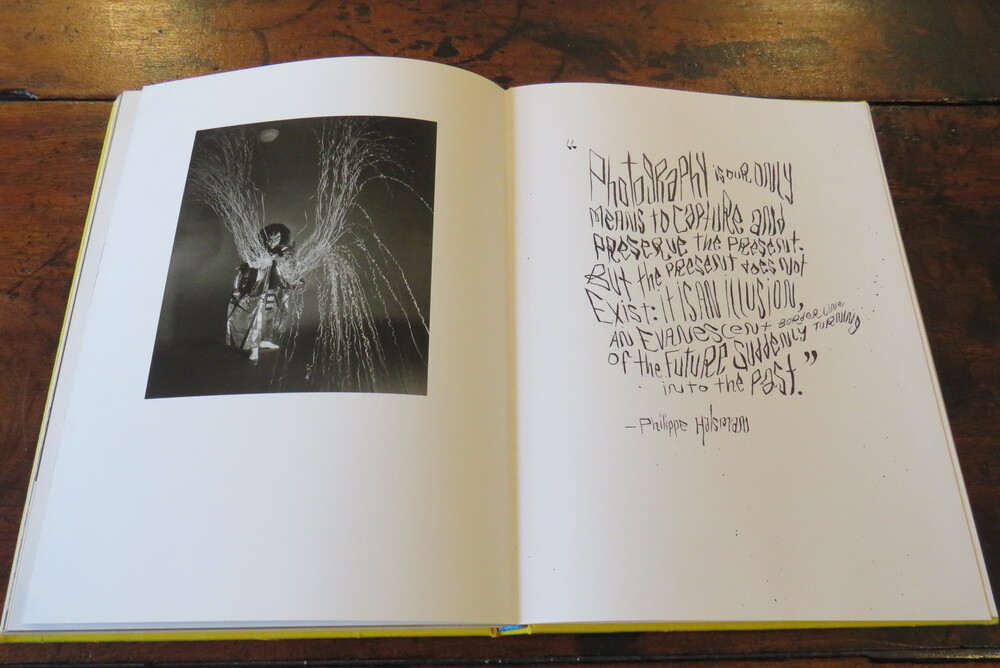 “PhotoGRAPHY is our only
means to capture and
preserve the present.
But the present does not
Exist: it is an illusion,
an Evanescent border line
of the future suddenly turning
into the past.”
– Philippe Halsmann